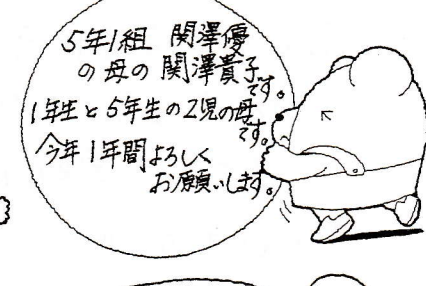 5年1組 関澤優
の母の 関澤貴子です。
1年生と5年生の2児の母です。
今年1年間よろしく
お願いします。